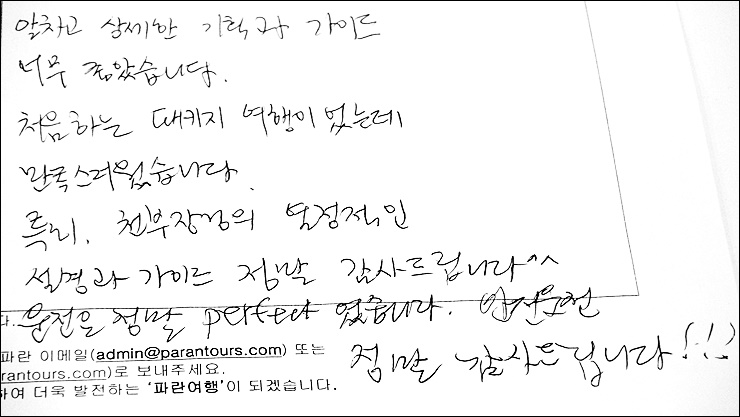 알차고 상세한 기획과 가이드
너무 좋았습니다.
처음하는 패키지 여행이었는데
만족스러웠습니다.
특히, 천부장님의 열정적인
설명과 가이드 정말 감사드립니다^^
운전은 정말 perfect 였습니다. 안전운전
정말 감사드립니다!!!
다.
파란 이메일(admin@parantours.com) 또는
rantours.com)로 보내주세요.
하여 더욱 발전하는 '파란여행'이 되겠습니다.